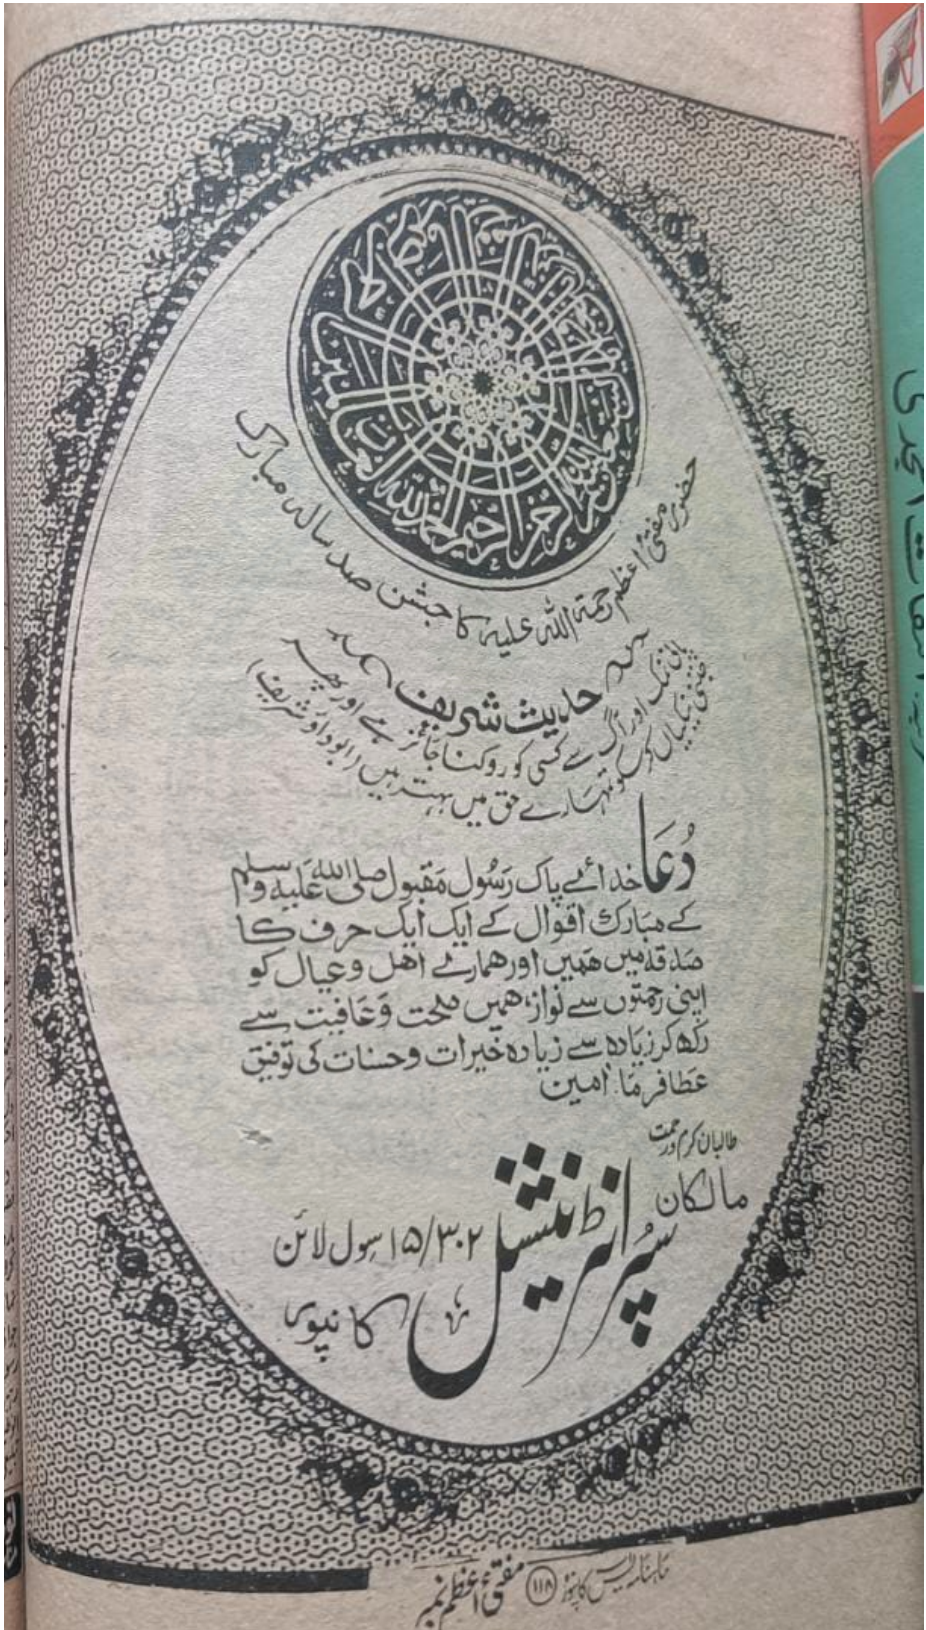 حضور مفتئ اعظم رحمۃ اللہ علیہ کا جشن صد سالہ مبارک
حدیث شریف
پانی نمک اور آگ سے کسی کو روکنا جائز ہے اور پھر
جتنی نیکیاں کرو تمہارے حق میں بہتر ہیں (ابوداؤد شریف)
دُعَا خدائے پاک رَسُول مَقبول صلی اللہ علیہ وسلم
کے مبَارک اقوال کے ایک ایک حرف کا
صَدقہ میں ھمیں اور ھمارے اھل وعیال کو
اپنی رحمتوں سے نواز، ھمیں صحت وَعَافیت سے
رکھ کر زیادہ سے زیادہ خیرات وحسنات کی توفیق
عَطا فرمَا۔ اٰمین
طالبان کرم ورحمت
مالکان
سُپر انٹرنیشنل ۱۵/۳۰۲ سول لائن
کانپور
ماہنامہ کانپور ۱۱۸ مفتئ اعظم نمبر